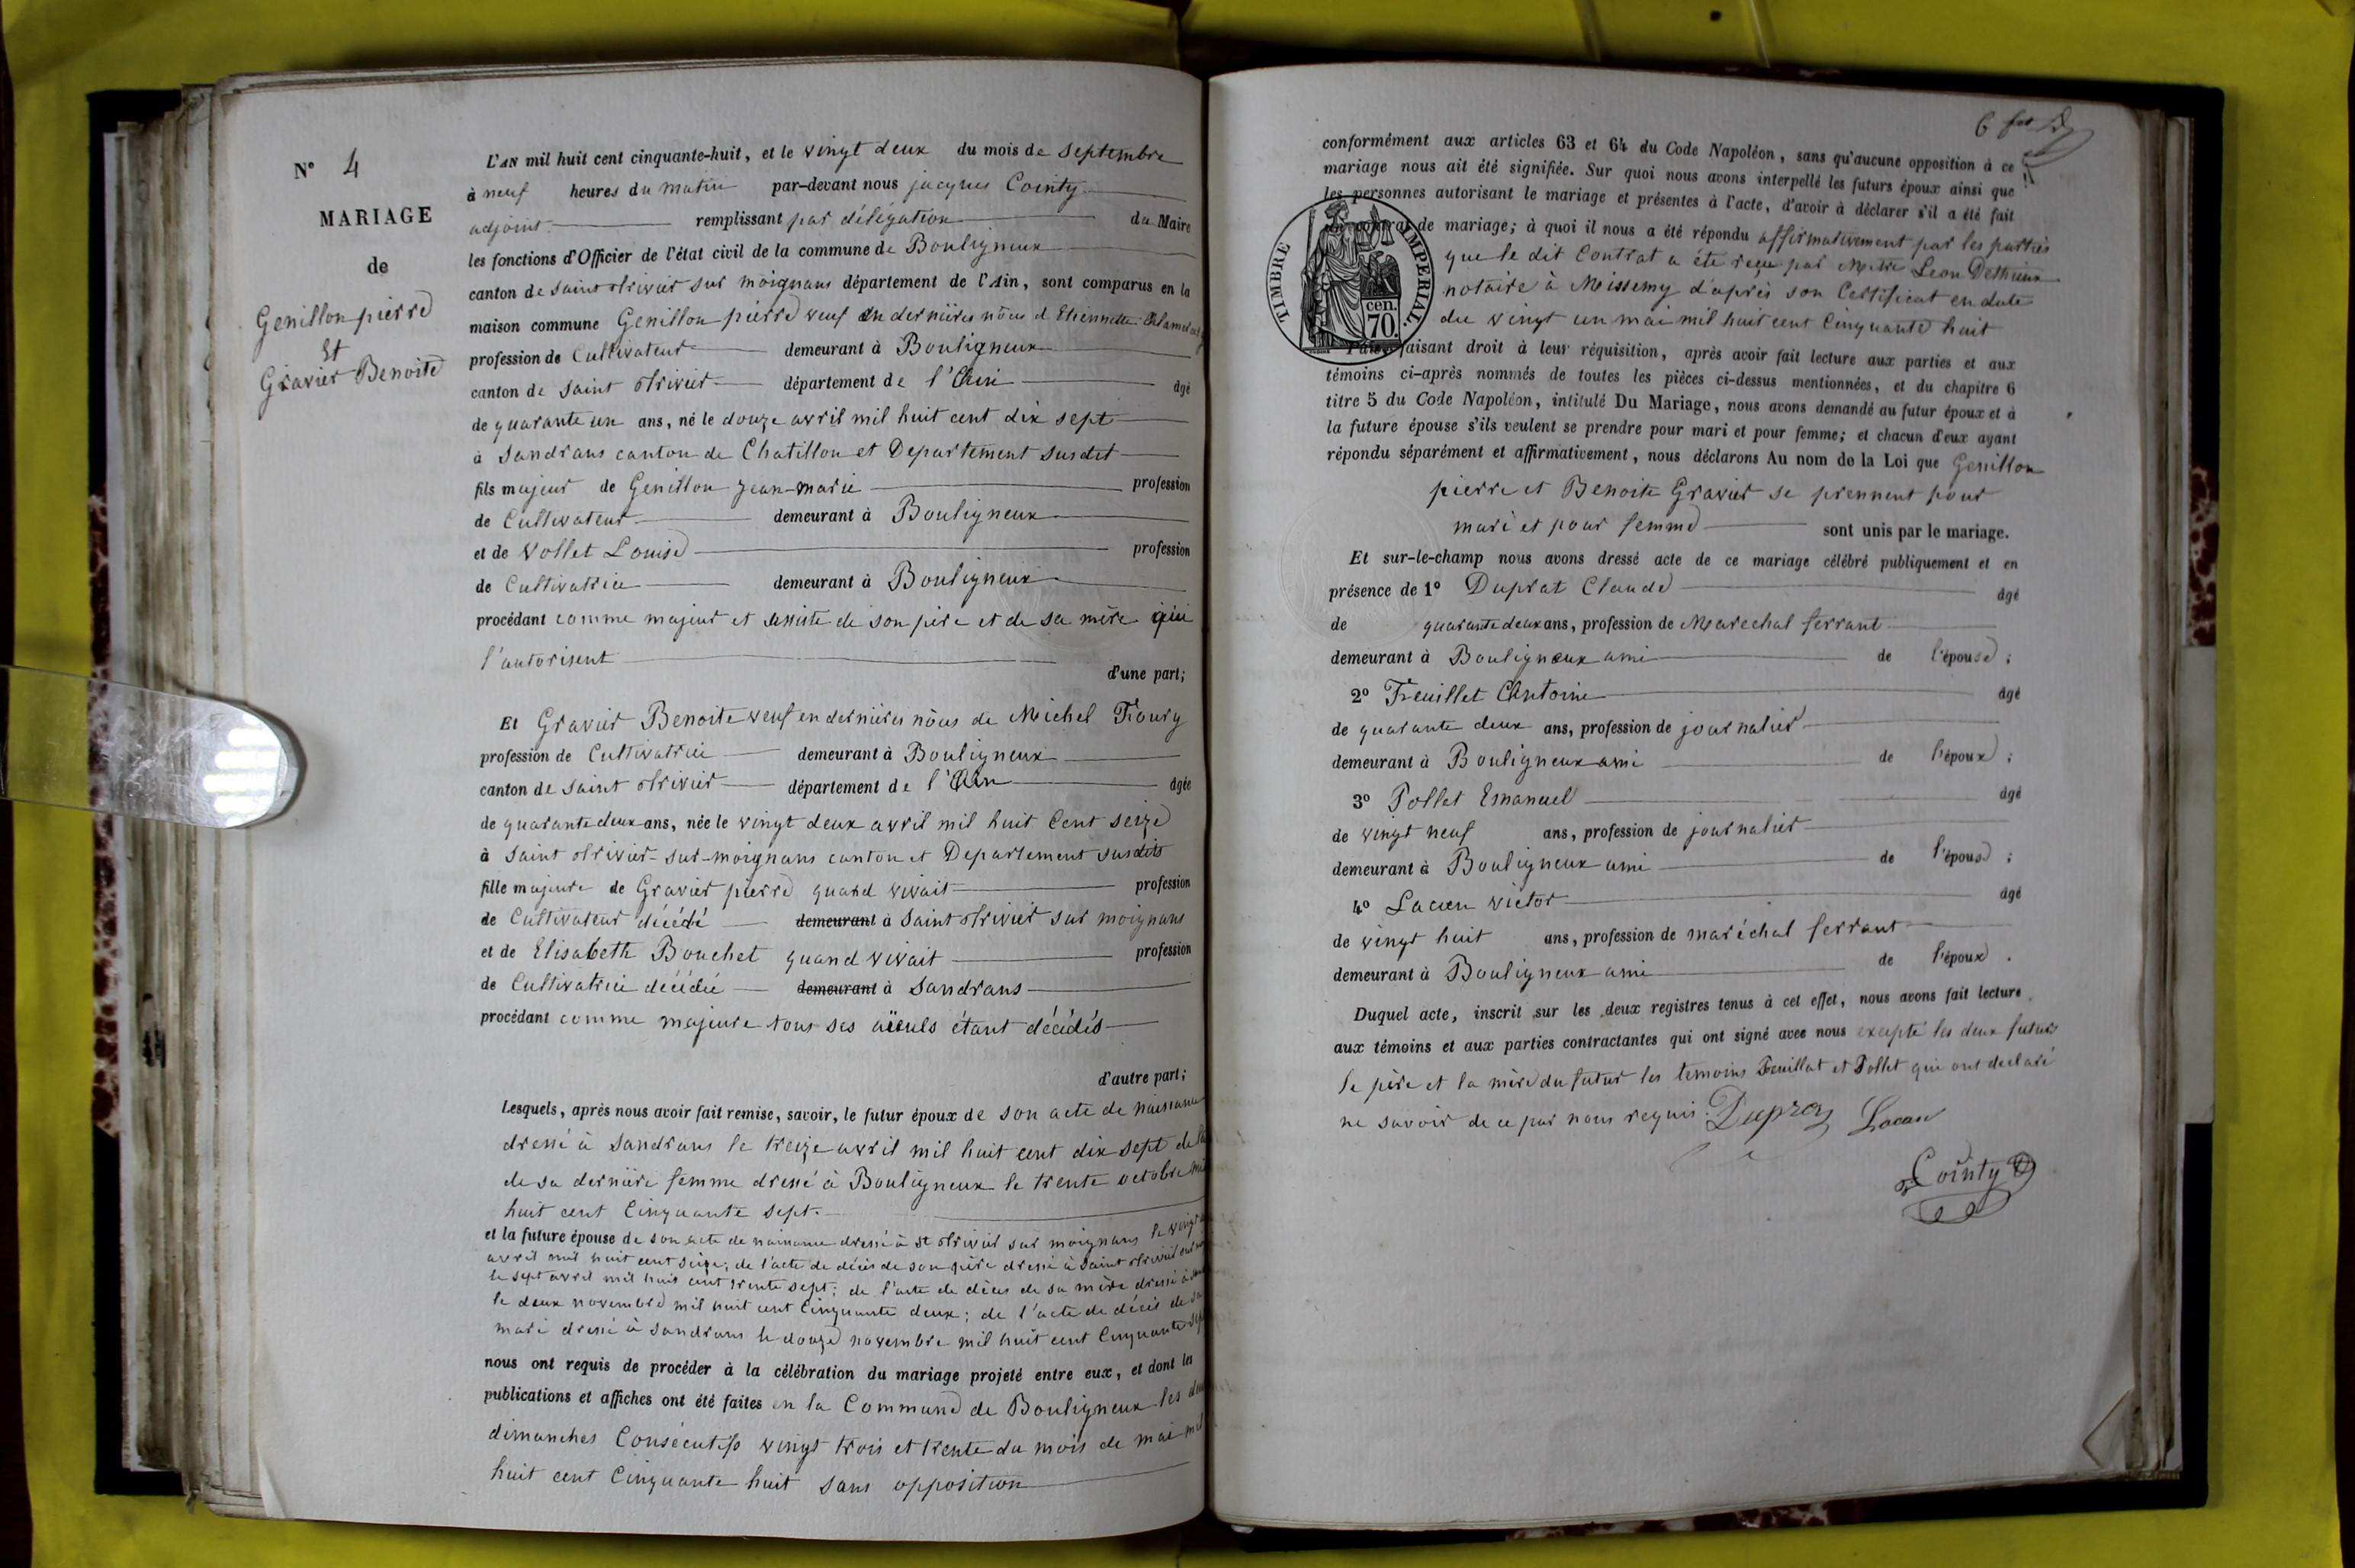 N° 4
MARIAGE
de
Genillon pierre
Et
Gravier Benoite
L'AN mil huit cent cinquante-huit, et le vingt deux du mois de Septembre
à neuf heures du matin par-devant nous jacques Cointy
adjoint remplissant par délégation du Maire
les fonctions d'Officier de l'état civil de la commune de Bouligneux
canton de saint trivier sur moignans département de l'Ain, sont comparus en la
maison commune Genillon pierre veuf en dernières nôces d'Etiennette
profession de Cultivateur demeurant à Bouligneux
canton de saint trivier département de l'Ain âgé
de quarante un ans, né le douze avril mil huit cent dix sept
à Sandrans canton de Chatillon et Departement susdit
fils majeur de Genillon jean-marie profession
de Cultivateur demeurant à Bouligneux
et de Vollet Louise profession
de Cultivatrice demeurant à Bouligneux
procédant comme majeur et assisté de son père et de sa mère qui
l'autorisent
d'une part;
Et Gravier Benoite veuf en dernières nôces de Michel Foury
profession de Cultivatrice demeurant à Bouligneux
canton de saint trivier département de l'Ain âgée
de quarante deux ans, née le vingt deux avril mil huit Cent seize
à saint trivier-sur-moignans canton et Departement susdits
fille majeure de Gravier pierre quand vivait profession
de Cultivateur décédé demeurant à saint trivier sur moignans
et de Elisabeth Bouchet quand vivait profession
de Cultivatrice décédée demeurant à Sandrans
procédant comme majeure tous ses aïeuls étant décédés
d'autre part;
Lesquels, après nous avoir fait remise, savoir, le futur époux de son acte de naissance
dressé à Sandrans le treize avril mil huit cent dix sept de
de sa dernière femme dressé à Bouligneux le trente octobre mil
huit cent Cinquante sept.
et la future épouse de son acte de naissance dressé à st trivier sur moignans le vingt
avril mil huit cent seize; de l'acte de décès de son père dressé à saint trivier sur
le sept avril mil huit cent trente sept; de l'acte de décès de sa mère dressé à
le deux novembre mil huit cent Cinquante deux; de l'acte de décès de son
mari dressé à Sandrans le douze novembre mil huit cent Cinquante sept
nous ont requis de procéder à la célébration du mariage projeté entre eux, et dont les
publications et affiches ont été faites en la Commune de Bouligneux les deux
dimanches Consécutifs vingt trois et trente du mois de mai mil
huit cent Cinquante huit sans opposition
6
conformément aux articles 63 et 64 du Code Napoléon, sans qu'aucune opposition à ce
mariage nous ait été signifiée. Sur quoi nous avons interpellé les futurs époux ainsi que
les personnes autorisant le mariage et présentes à l'acte, d'avoir à déclarer s'il a été fait
un contrat de mariage; à quoi il nous a été répondu affirmativement par les parties
que le dit Contrat a été reçu par Maitre Leon
notaire à Missemy d'après son Certificat en date
du vingt un mai mil huit cent Cinquante huit
TIMBRE IMPERIAL.
70 cen.
Puis faisant droit à leur réquisition, après avoir fait lecture aux parties et aux
témoins ci-après nommés de toutes les pièces ci-dessus mentionnées, et du chapitre 6
titre 5 du Code Napoléon, intitulé Du Mariage, nous avons demandé au futur époux et à
la future épouse s'ils veulent se prendre pour mari et pour femme; et chacun d'eux ayant
répondu séparément et affirmativement, nous déclarons Au nom de la Loi que Genillon
pierre et Benoite Gravier se prennent pour
mari et pour femme sont unis par le mariage.
Et sur-le-champ nous avons dressé acte de ce mariage célébré publiquement et en
présence de 1° Duprat Claude âgé
de quarante deux ans, profession de Marechal ferrant
demeurant à Bouligneux ami de l'épouse;
2° Feuillet Antoine âgé
de quarante deux ans, profession de journalier
demeurant à Bouligneux ami de l'époux;
3° Pollet Emanuel âgé
de vingt neuf ans, profession de journalier
demeurant à Bouligneux ami de l'épouse;
4° Lacan victor âgé
de vingt huit ans, profession de maréchal ferrant
demeurant à Bouligneux ami de l'époux.
Duquel acte, inscrit sur les deux registres tenus à cet effet, nous avons fait lecture
aux témoins et aux parties contractantes qui ont signé avec nous excepté les deux futurs
le père et la mère du futur les temoins Feuillat et Pollet qui ont déclaré
ne savoir de ce par nous requis. Duprat Lacan
Cointy